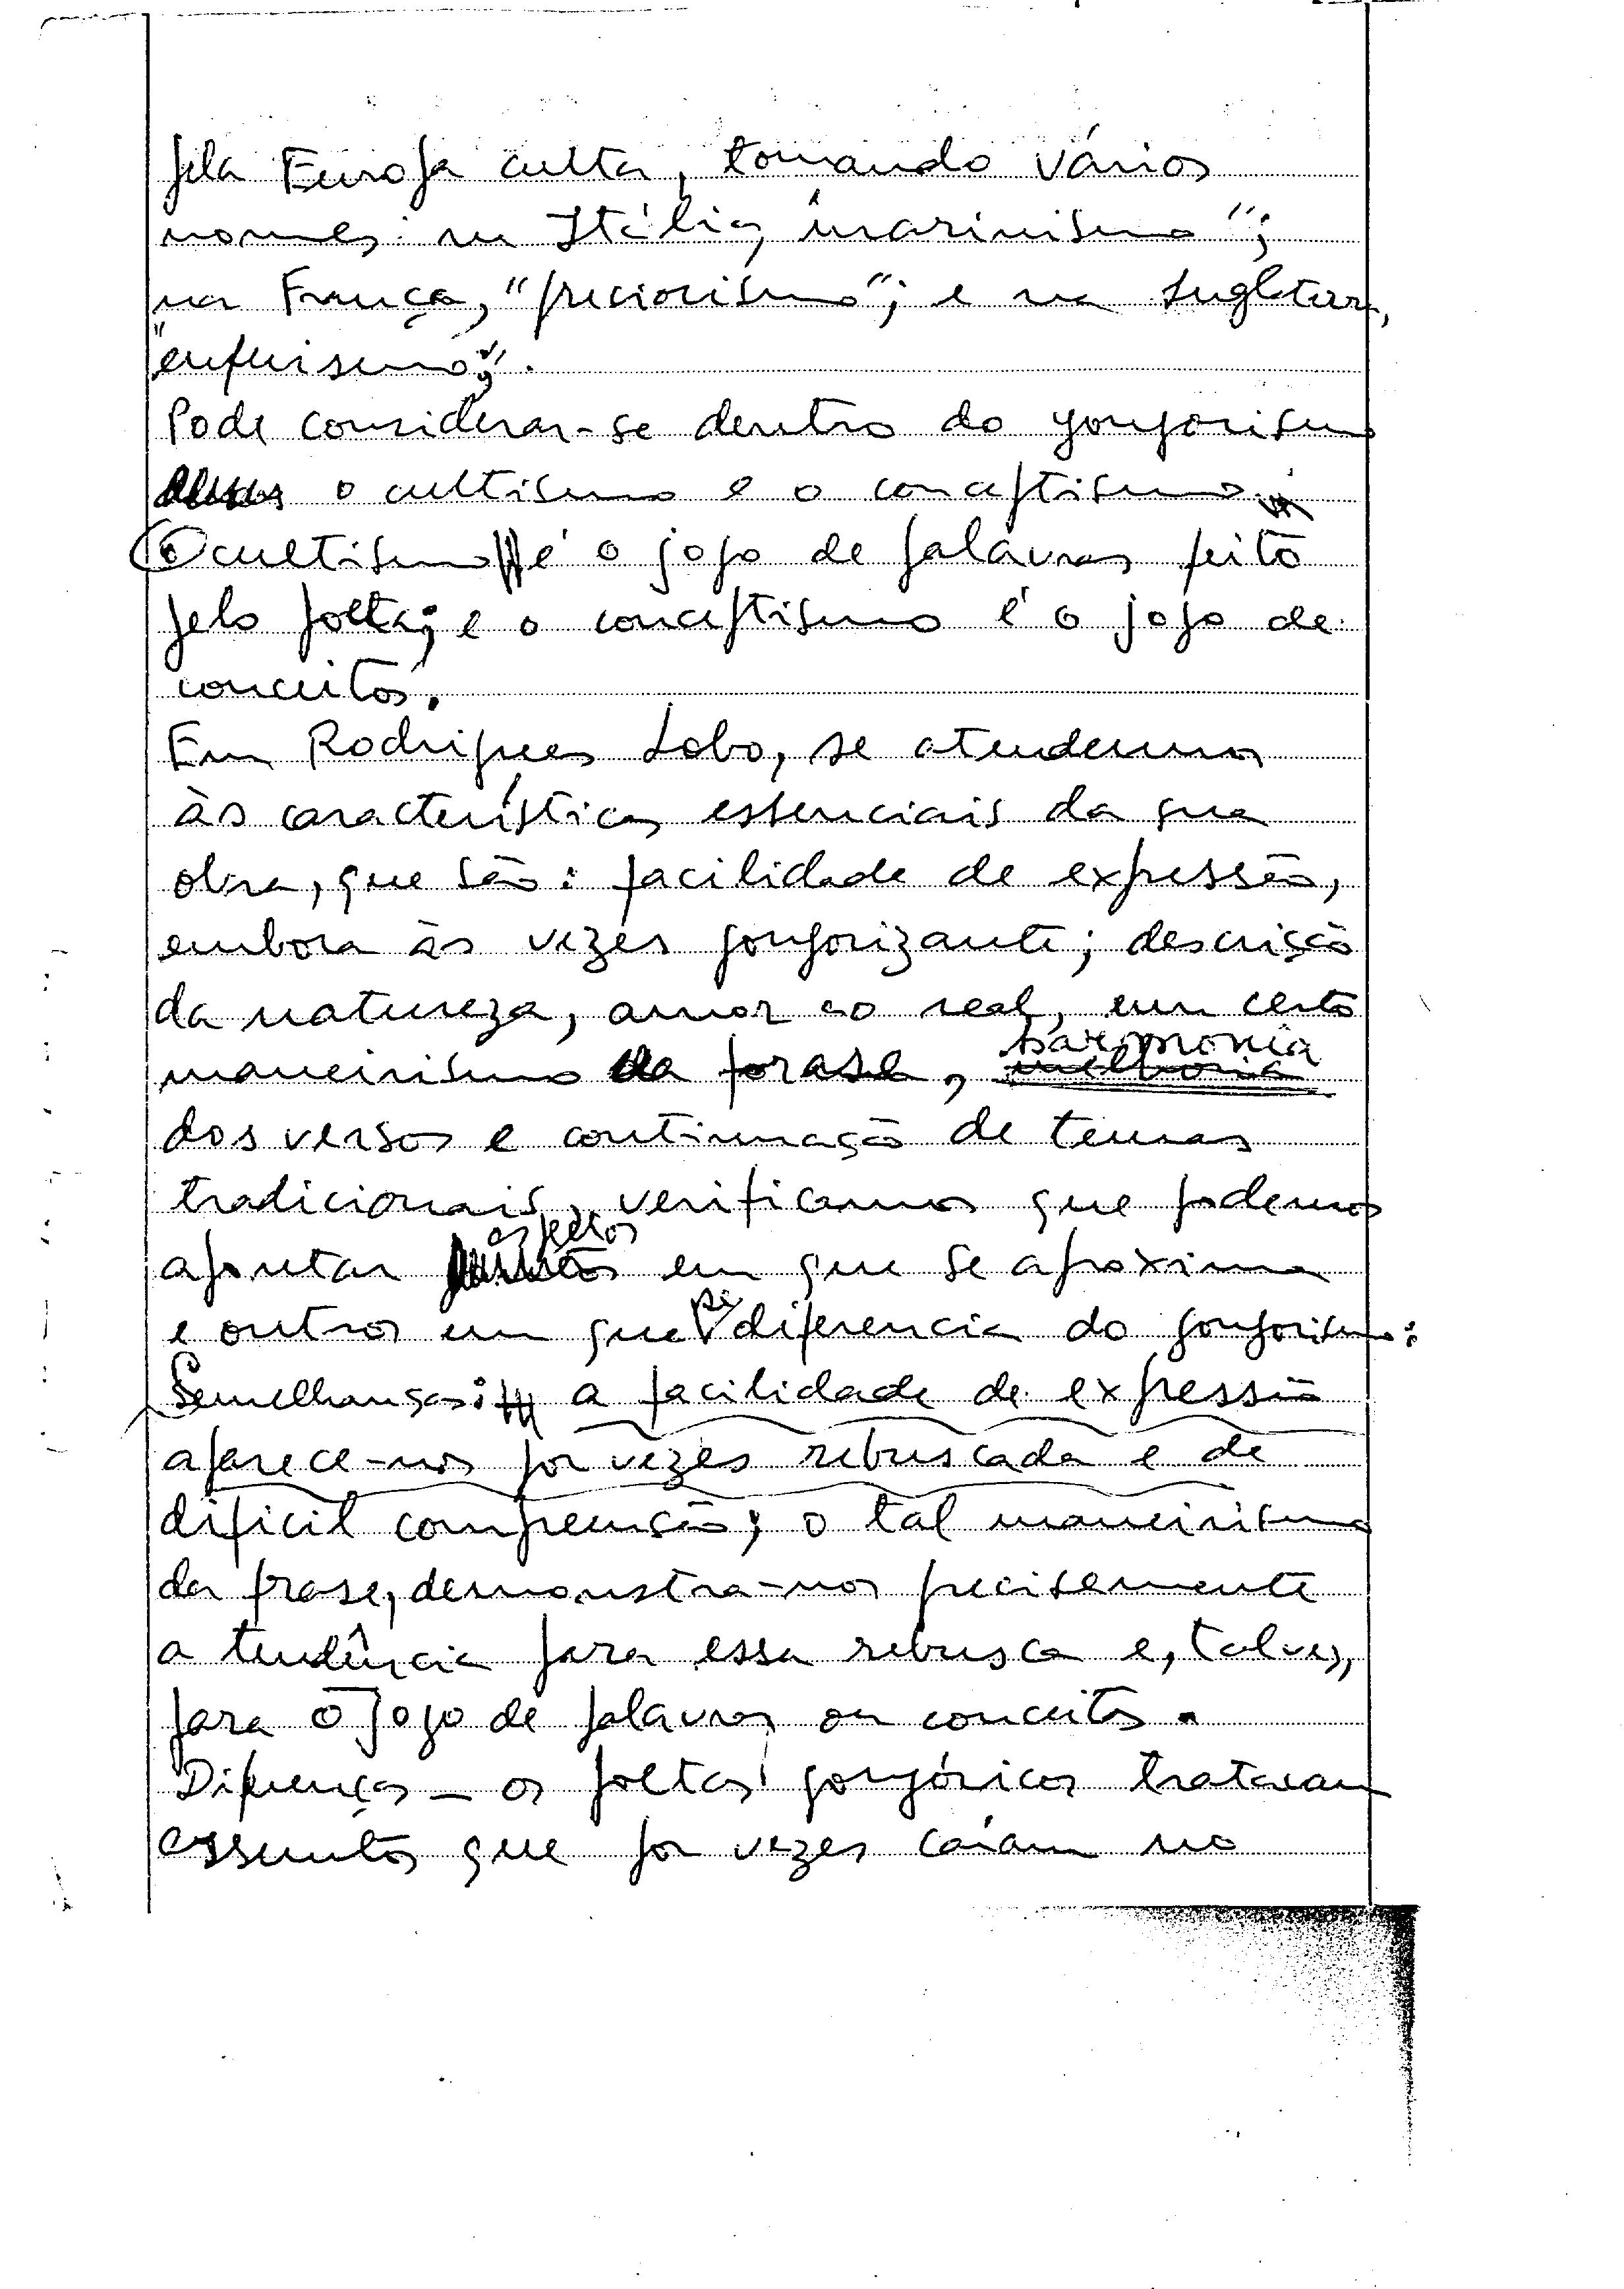 pela Europa culta, tomando vários
nomes: na Itália, "marinismo";
na França, "preciosismo"; e na Inglaterra,
"eufuismo".
Pode considerar-se dentro do gongorismo
o cultismo e o conceptismo.
O cultismo é o jogo de palavras feito
pelo poeta; e o conceptismo é o jogo de
conceitos.
Em Rodrigues Lobo, se atendermos
às características essenciais da sua
obra, que são: facilidade de expressão,
embora às vezes gongorizante; descrição
da natureza, amor ao real, um certo
maneirismo da frase, harmonia
dos versos e continuação de temas
tradicionais, verificamos que podemos
apontar aspectos em que se aproxima
e outros em que se diferencia do gongorismo:
Semelhanças: a facilidade de expressão
aparece-nos por vezes rebuscada e de
difícil compreensão; o tal maneirismo
da frase, demonstra-nos precisamente
a tendência para essa rebusca e, talvez,
para o jogo de palavras ou conceitos.
Diferenças – os poetas gongóricos tratavam
assuntos que por vezes caíam no